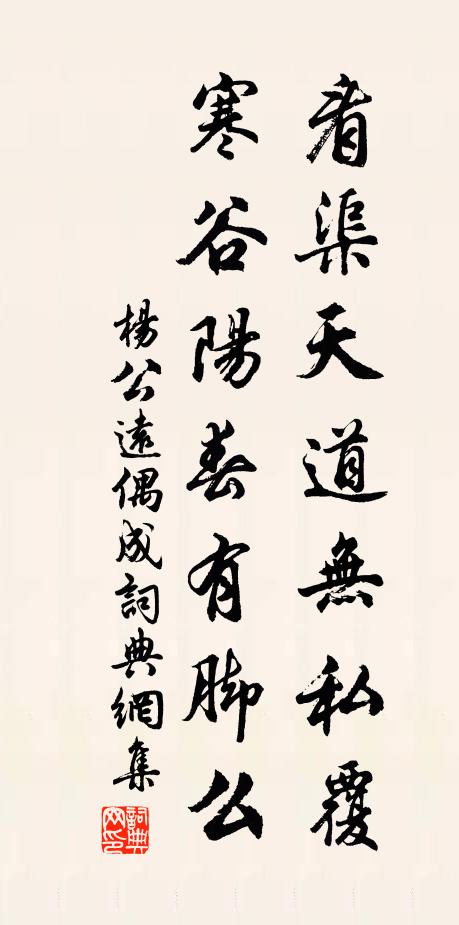 看渠天道無私覆
寒谷陽春有脚公
楊公遠偶成詞典網集
詞典網印